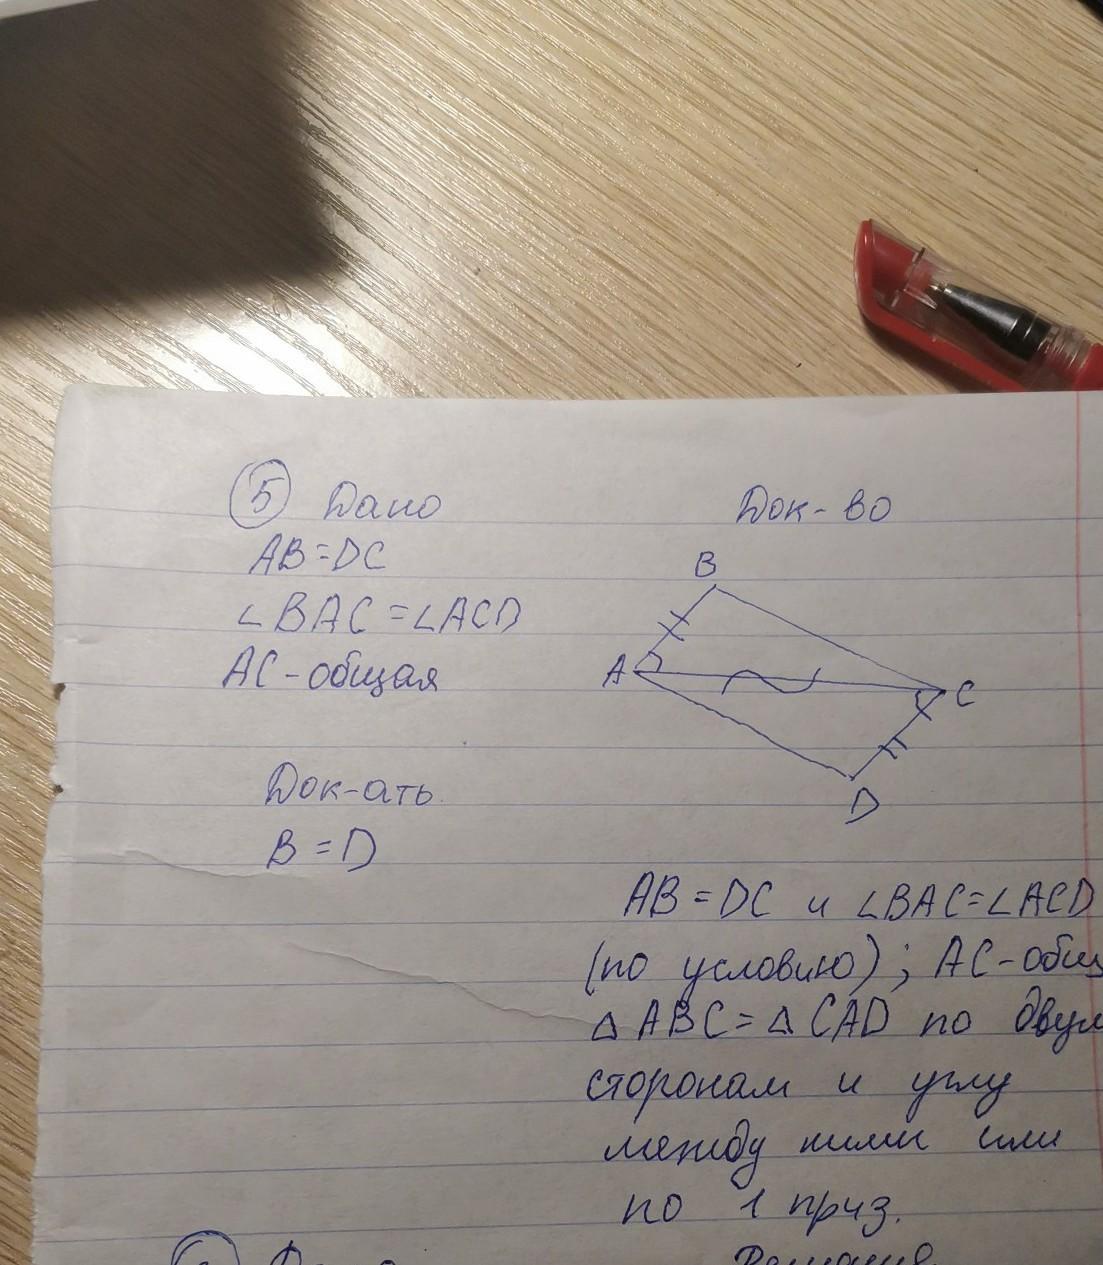 5 Дано
AB=DC
∠BAC=∠ACD
AC-общая
Док-ать
B=D
Док-во
B
A
C
D
AB=DC и ∠BAC=∠ACD
(по условию); AC-общ
△ABC=△CAD по двум
сторонам и углу
между ними или
по 1 приз.